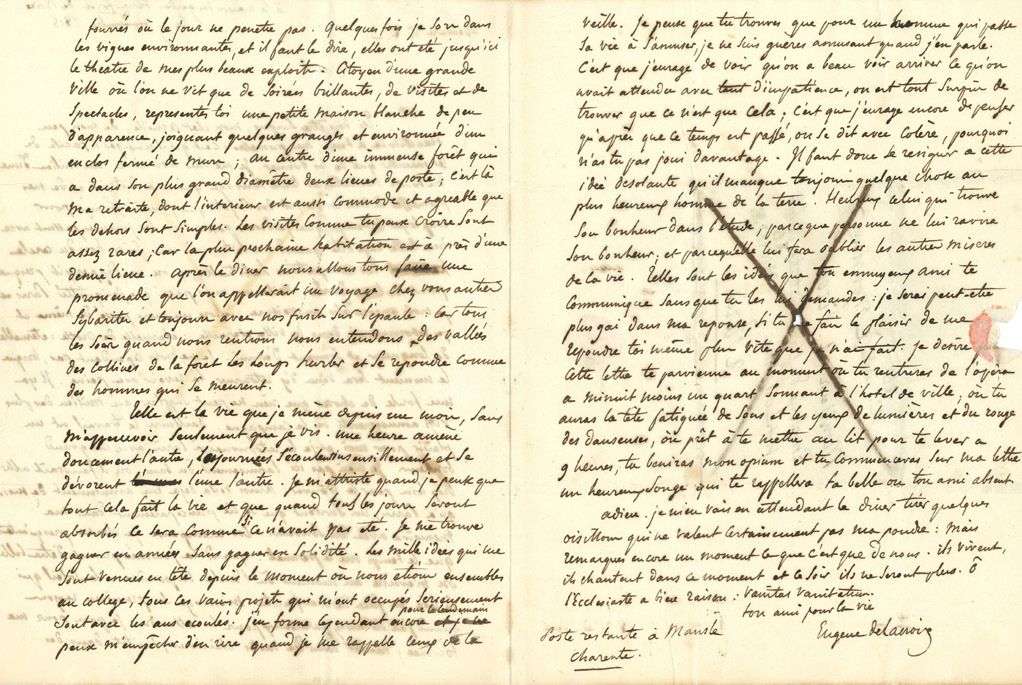 fourrés où le jour ne penetre pas. Quelquefois je sors dans
les vignes environnantes, et il faut le dire, elles ont été jusqu'ici
le théatre de mes plus beaux exploits. Citoyen d'une grande
ville où l'on ne vit que de soirées brillantes, de visites et de
spectacles, représentes toi une petite maison blanche de peu
d'apparence, joignant quelques granges et environnée d'un
enclos fermé de murs; au centre d'une immense forêt qui
a dans son plus grand diamêtre deux lieues de poste; c'est là
ma retraite, dont l'interieur est aussi commode et agreable que
les dehors sont simples. Les visites comme tu peux croire sont
assez rares; car la plus prochaine habitation est à près d'une
demie lieue. Après le diner nous allons tous faire une
promenade que l'on appellerait un voyage chez vous autres
Sybarites et toujours avec nos fusils sur l'épaule: car tous
les soirs quand nous rentrons nous entendons des vallés
des collines de la forêt les loups hurler et se repondre comme
des hommes qui se meurent.
Telle est la vie que je mène depuis un mois, sans
m'appercevoir seulement que je vis. Une heure amène
doucement l'autre, les journées s'écoulent insensiblement et se
dévorent l'une l'autre. Je m'attriste quand je pense que
tout cela fait la vie et que quand tous les jours seront
absorbés ce sera comme si ce n'avait pas eté. Je me trouve
gagner en années sans gagner en solidité. Les mille idees qui me
sont venues en tête depuis le moment où nous etions ensembles
au college, tous ces vains projets qui m'ont occupés serieusement
sont avec les ans ecoulés. J'en forme cependant encore pour le lendemain
peux m'empêcher d'en rire quand je me rappelle ceux de la
veille. Je pense que tu trouves que pour un homme qui passe
sa vie à s'amuser, je ne suis guères amusant quand j'en parle.
C'est que j'enrage de voir qu'on a beau voir arriver ce qu'on
avait attendu avec tant d'impatience, on est tout surpris de
trouver que ce n'est que cela; c'est que j'enrage encore de penser
qu'après que ce temps est passé, on se dit avec colère, pourquoi
n'as tu pas joui davantage. Il faut donc se resigner a cette
idée desolante qu'il manque toujours quelque chose au
plus heureux homme de la terre. Heureux celui qui trouve
son bonheur dans l'étude, parceque personne ne lui ravira
son bonheur, et parcequ'elle lui fera oublier les autres misères
de la vie. Telles sont les idées que ton ennuyeux ami te
communique sans que tu les lui demandes: je serai peut-etre
plus gai dans ma reponse, si tu me fais le plaisir de me
repondre toi même plus vite que je n'ai fait. Je desire
cette lettre te parvienne au moment où tu rentreras de l'opéra
a minuit moins un quart sonnant à l'hotel de ville; où tu
auras la tête fatiguée de sons et les yeux de lumières et du rouge
des danseuses, où prêt à te mettre au lit pour te lever a
9 heures, tu beniras mon opium et tu commenceras sur ma lettre
un heureux songe qui te rappellera ta belle ou ton ami absent.
adieu. je m'en vais en attendant le diner tirer quelques
oisillons qui ne valent certainement pas ma poudre: mais
remarques encore un moment ce que c'est que de nous. ils vivent,
ils chantent dans ce moment et ce soir ils ne seront plus. Ô
l'Ecclesiaste a bien raison: vanitas vanitatum.
ton ami pour la vie
Poste restante à Mansle Eugene delacroix
Charente.